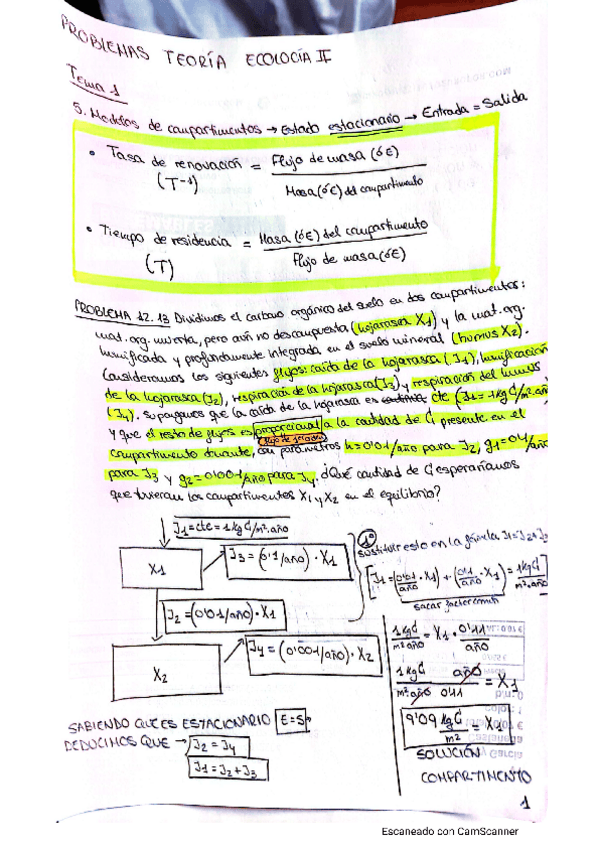 PROBLEMAS TEORÍA ECOLOGÍA II
Tema 1
5. Modelos de compartimentos → Estado estacionario → Entrada = Salida
• Tasa de renovación = Flujo de masa (ó E)
(T⁻¹) Masa (ó E) del compartimento
• Tiempo de residencia = Masa (ó E) del compartimento
(T) Flujo de masa (ó E)
PROBLEMA 12.13 Dividimos el carbono orgánico del suelo en dos compartimentos:
mat. org. muerta, pero aún no descompuesta (hojarasca X1) y la mat. org.
humificada y profundamente integrada en el suelo mineral (humus X2).
Consideramos los siguientes flujos: caída de la hojarasca (J1), humificación
de la hojarasca (J2), respiración de la hojarasca (J3) y respiración del humus
(J4). Supongamos que la caída de la hojarasca es cte (J1 = 1 kg C/m².año)
y que el resto de flujos es proporcional a la cantidad de C presente en el
flujo de salida
compartimento donante, con parámetros h=0'01/año para J2, g1=0'1/año
para J3 y g2=0'001/año para J4. ¿Qué cantidad de C esperaríamos
que tuvieran los compartimentos X1 y X2 en el equilibrio?
J1 = cte = 1 kg C/m².año
X1
J3 = (0'1/año) · X1
J2 = (0'01/año) · X1
X2
J4 = (0'001/año) · X2
SABIENDO QUE ES ESTACIONARIO E=S
DEDUCIMOS QUE → J2 = J4
J1 = J2 + J3
1º
sustituir esto en la fórmula J1=J2+J3
[J1 = (0'01/año · X1) + (0'1/año · X1) = 1kgC/m².año]
sacar factor común
1 kg C/m² año = X1 · 0'11/año
1 kg C/m².año · año/0'11 = X1
9'09 kg C/m² = X1
SOLUCIÓN
COMPARTIMENTO
1
Escaneado con CamScanner